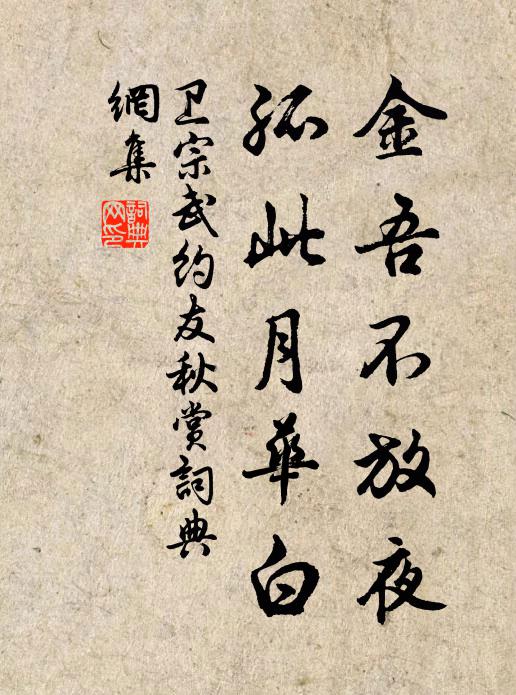 金吾不放夜
孤此月華白
卫宗武約友秋赏詞典
網集
詞典
网印